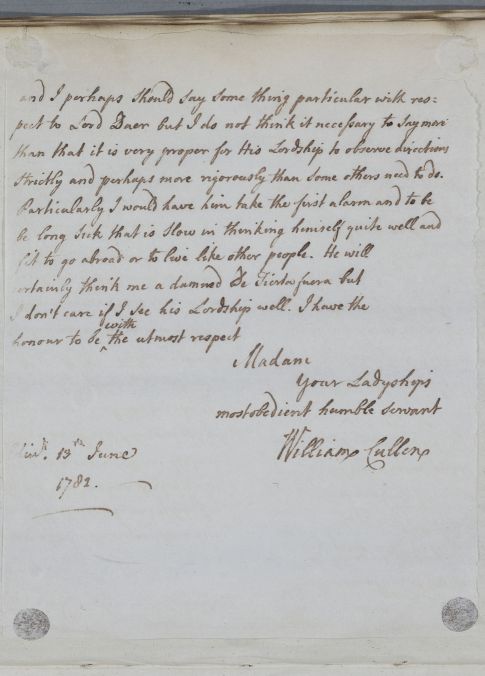 and I perhaps should say some thing particular with res=
pect to Lord Daer but I do not think it necessary to say more
than that it is very proper for His Lordship to observe directions
strictly and perhaps more rigorously than some others need to do.
Particularly I would have him take the first alarm and to be
be long sick that is slow in thinking himself quite well and
fit to go abroad or to live like other people. He will
certainly think me a damned De Tirtoafuera but
I don't care if I see his Lordship well. I have the
honour to be with the utmost respect
Madam
Your Ladyship's
most obedient humble servant
William Cullen
Edinr. 13th June
1782.